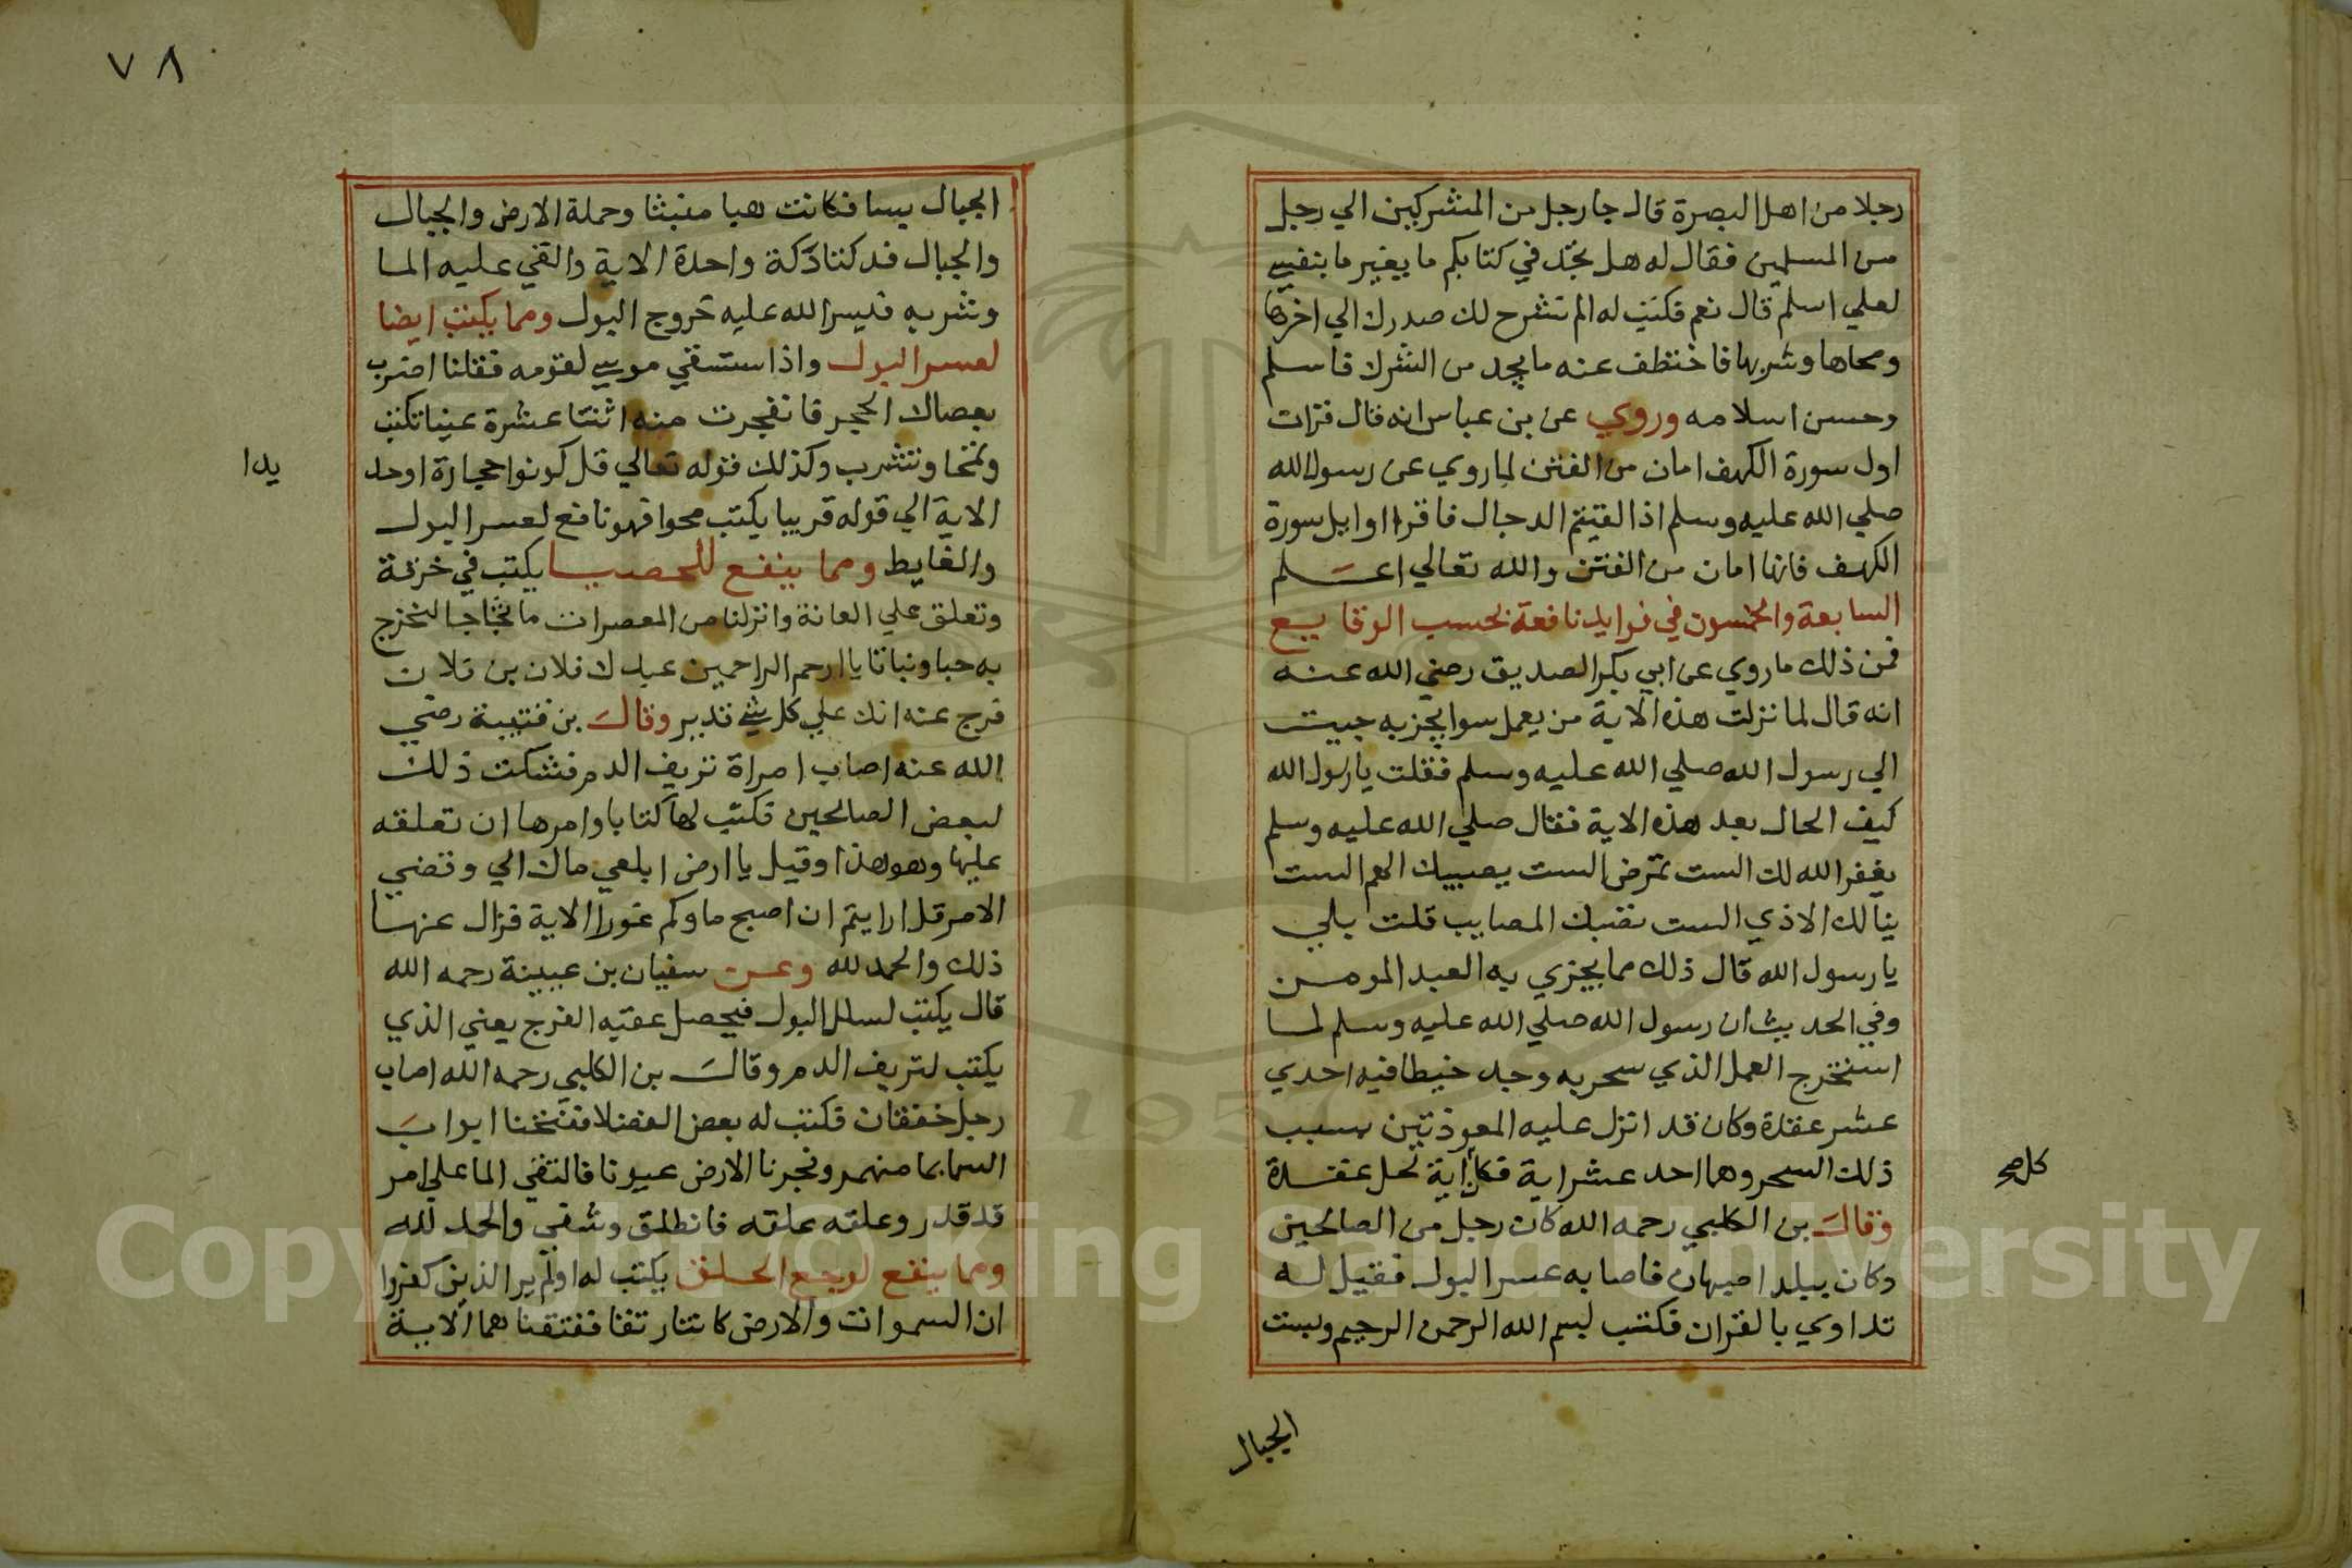 رجلا من اهل البصرة قال جا رجل من المشركين الي رجل
من المسلمين فقال له هل تجد في كتابكم ما يغير ما بنفسي
لعلي اسلم قال نعم فكتب له الم نشرح لك صدرك الي اخرها
ومحاها وشربها فاختطف عنه ما يجد من الشرك فاسلم
وحسن اسلامه وروي عن بن عباس انه قال قرات
اول سورة الكهف امان من الفتن لما روي عن رسول الله
صلي الله عليه وسلم اذا لقيتم الدجال فاقراوا اوايل سورة
الكهف فانها امان من الفتن والله تعالي اعلم
السابعة والخمسون في فوايد نافعة بحسب الوقايع
فمن ذلك ما روي عن ابي بكر الصديق رضي الله عنه
انه قال لما نزلت هذه الاية من يعمل سوا يجز به جيت
الي رسول الله صلي الله عليه وسلم فقلت يا رسول الله
كيف الحال بعد هذه الاية فقال صلي الله عليه وسلم
يغفر الله لك الست تمرض الست يصيبك الهم الست
ينالك الاذي الست تصبك المصايب قلت بلي
يا رسول الله قال ذلك مما يجزي به العبد المومن
وفي الحديث ان رسول الله صلي الله عليه وسلم لما
استخرج العمل الذي سحر به وجد خيطا فيه احدي
عشر عقدة وكان قد انزل عليه المعوذتين بسبب
ذلك السحر وهما احد عشر اية فكل اية تحل عقدة
كل صح
وقال بن الكلبي رحمه الله كان رجل من الصالحين
وكان ببلد اصبهان فاصابه عسر البول فقيل له
تداوي بالقران فكتب لبسم الله الرحمن الرحيم وبست
الجبال
٧٨
الجبال بسا فكانت هبا منبثا وحملة الارض والجبال
والجبال فدكتا دكة واحدة الاية والقي عليه الما
وشربه فيسر الله عليه خروج البول ومما يكتب ايضا
لعسر البول واذ استسقي موسي لقومه فقلنا اضرب
بعصاك الحجر فانفجرت منه اثنتا عشرة عينا تكتب
وتمحا وتشرب وكذلك قوله تعالي قل كونوا حجارة او حد
يدا
الاية الي قوله قريبا يكتب محوا فهو نافع لعسر البول
والغايط ومما ينفع للحصبا يكتب في خرقة
وتعلق علي العانة وانزلنا من المعصرات ما ثجاجا لنخرج
به حبا ونباتا يا ارحم الراحمين عبدك فلان بن فلان
فرج عنه انك علي كل شي قدير وقال بن قتيبة رضي
الله عنه اصاب امراة نزيف الدم فشكت ذلك
لبعض الصالحين فكتب لها كتابا وامرها ان تعلقه
عليها وهو هذا وقيل يا ارض ابلعي ماك الي وقضي
الامر قل ارايتم ان اصبح ماوكم غورا الاية فزال عنها
ذلك والحمد لله وعن سفيان بن عيينة رحمه الله
قال يكتب لسلس البول فيحصل عقبه الفرج يعني الذي
يكتب لنزيف الدم وقال بن الكلبي رحمه الله اصاب
رجل خفقان فكتب له بعض الفضلا ففتحنا ابواب
السما بما منهمر وفجرنا الارض عيونا فالتقي الما علي امر
قد قدر وعلقه علقه فانطلق وشفي والحمد لله
ومما ينفع لوجع الحلق يكتب له اولم ير الذين كفروا
ان السموات والارض كانتا رتقا ففتقناهما الاية
Copyright © King Saud University
195